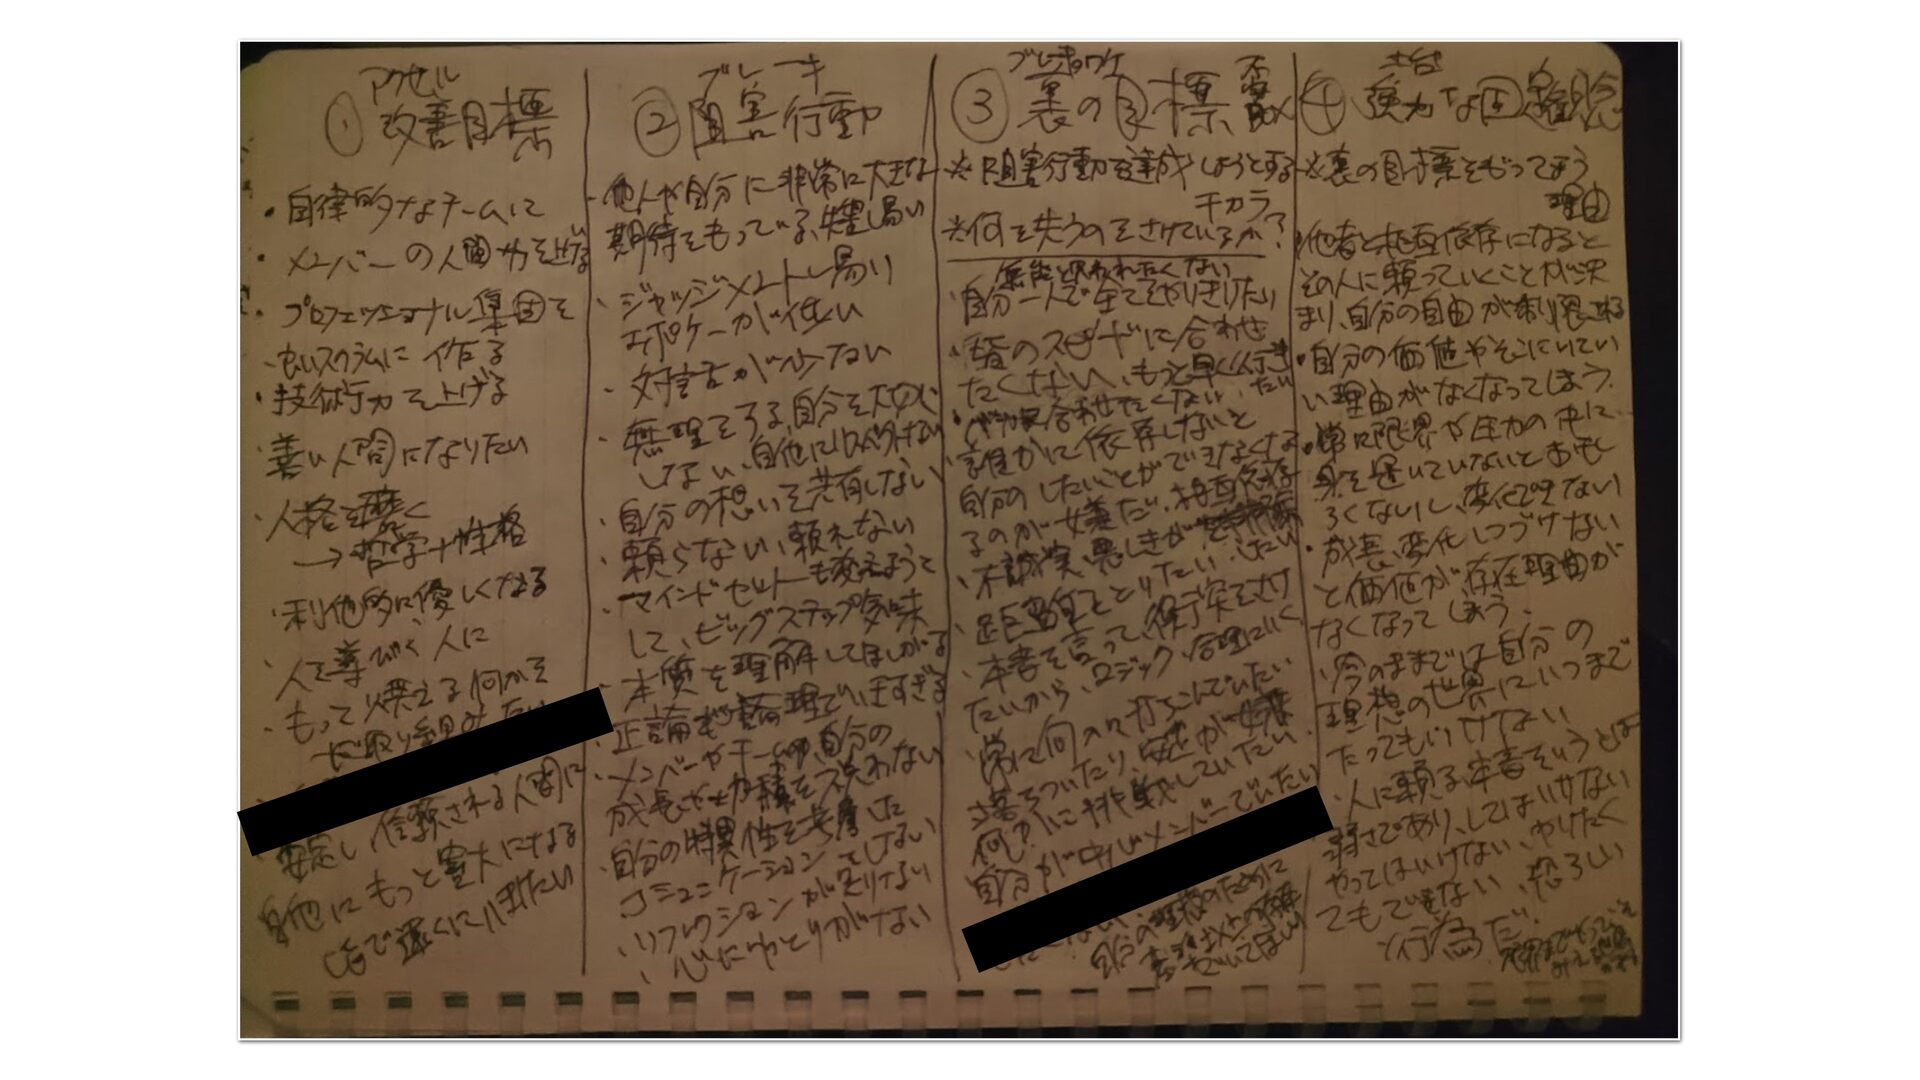 アクセル
① 改善目標
・自律的なチームに
・メンバーの人間力を上げる
・プロフェッショナル集団を
・良いスクラムに作る
・技術力を上げる
善い人間になりたい
・人格を磨く
→哲学+性格
・利他的に、優しくなる
・人を導びく人に
・もって燃える何かを
取り組みたい
安定し、信頼される人間に
自他にもっと寛大になる
皆で遠くに行きたい
ブレーキ
② 阻害行動
・他人や自分に非常に大きな
期待をもっている、失望し易い
・ジャッジメントし易い
エポケーが低い
・対話が少ない
・無理をする、自分を大切に
しない、自他に
・自分の想いを共有しない
・頼らない、頼れない
・マインドセットも変えようと
して、ビッグステップ気味
・本質を理解してほしがる
・正論も論理でいいすぎる
・メンバーやチームや、自分の
成長や
自分の特異性を考慮した
コミュニケーションをしない
・リフレクションが足りない
・心にゆとりがない
ブレーキのワケ
③ 裏の目標
※阻害行動を達成しようとする
チカラ
※何を失うのをさけているか?
無能と思われたくない
自分一人で全てをやりきりたい
・皆のスピードに合わせ
たくない、もっと早く行き
たい
合わせたくない
・誰かに依存しないと
自分のしたいことができなくなる
のが嫌だ、相互依存
・不誠実、悪しきが
・距離をとりたい、したい
・本音を言って、
たいから、ロジック、合理にいく
・常に何かに打ちこんでいたい
・落ちついたり、安定が嫌
何かに挑戦していたい
自分が中心メンバーでいたい
自分の理想のために
土台
④ 強力な固定観念
※裏の目標をもってしまう
理由
・他者と相互依存になると
その人に頼っていくことが決
まり、自分の自由が制限される
・自分の価値やそこにいてい
い理由がなくなってしまう
・常に限界や圧力の中に
身を置いていないとおもし
ろくないし、変化できない
・成長、変化しつづけない
と価値が、存在理由が
なくなってしまう
・今のままでは自分の
理想の世界にいつまで
たってもいけない
・人に頼る、本音をいうとは
弱さであり、してはいけない
やってはいけない、やりたく
てもできない、恐ろしい
行為だ。